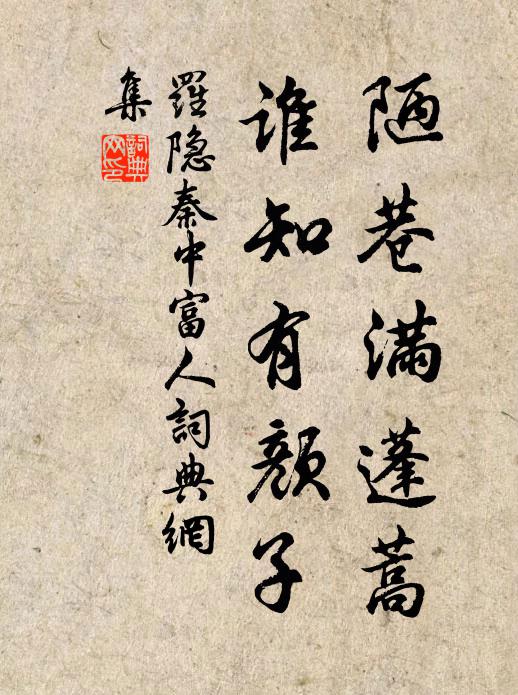 陋巷满蓬蒿
谁知有颜子
羅隐秦中富人詞典網
集
詞典
网印